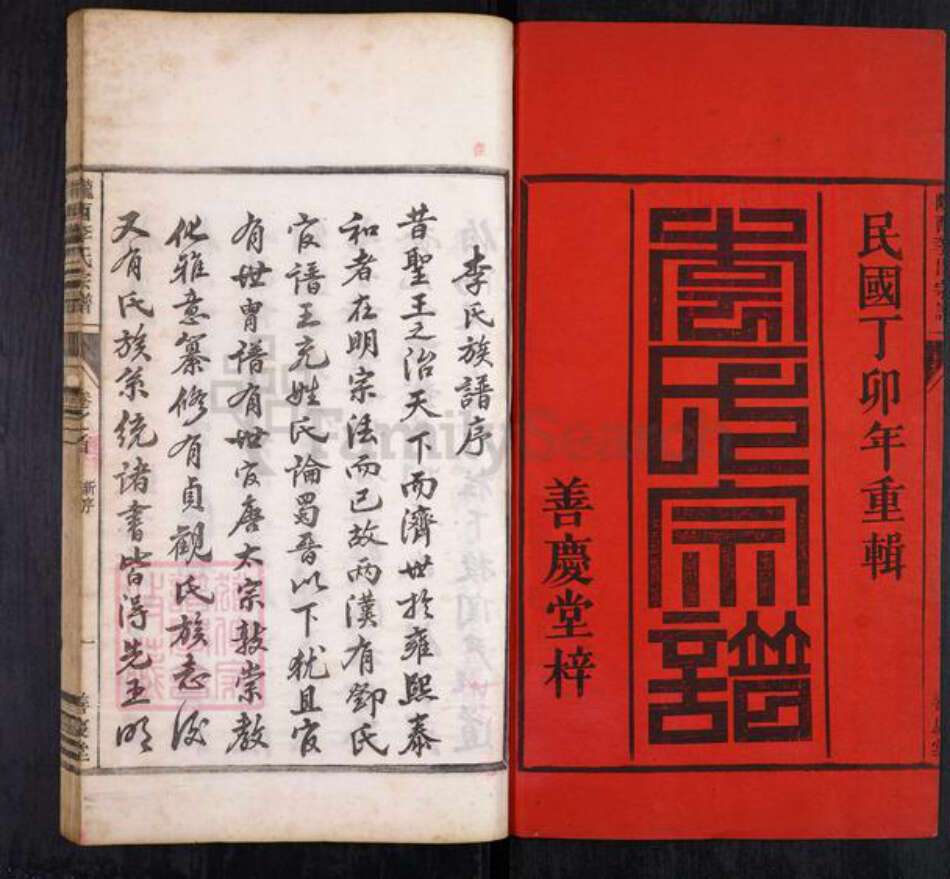 民國丁卯年重輯
李氏宗譜
善慶堂梓
李氏族譜序
昔聖王之治天下而濟世於雍熙泰
和者在明宗法而已故兩漢有鄧氏
官譜王充姓氏論蜀晉以下犹且官
有世胄譜有世官唐太宗敦崇教
化雅意纂修有貞觀氏族志後
又有氏族系統諸書皆得先王明
隴西李氏宗譜
卷之首
新序
一
善慶堂
FamilySearch